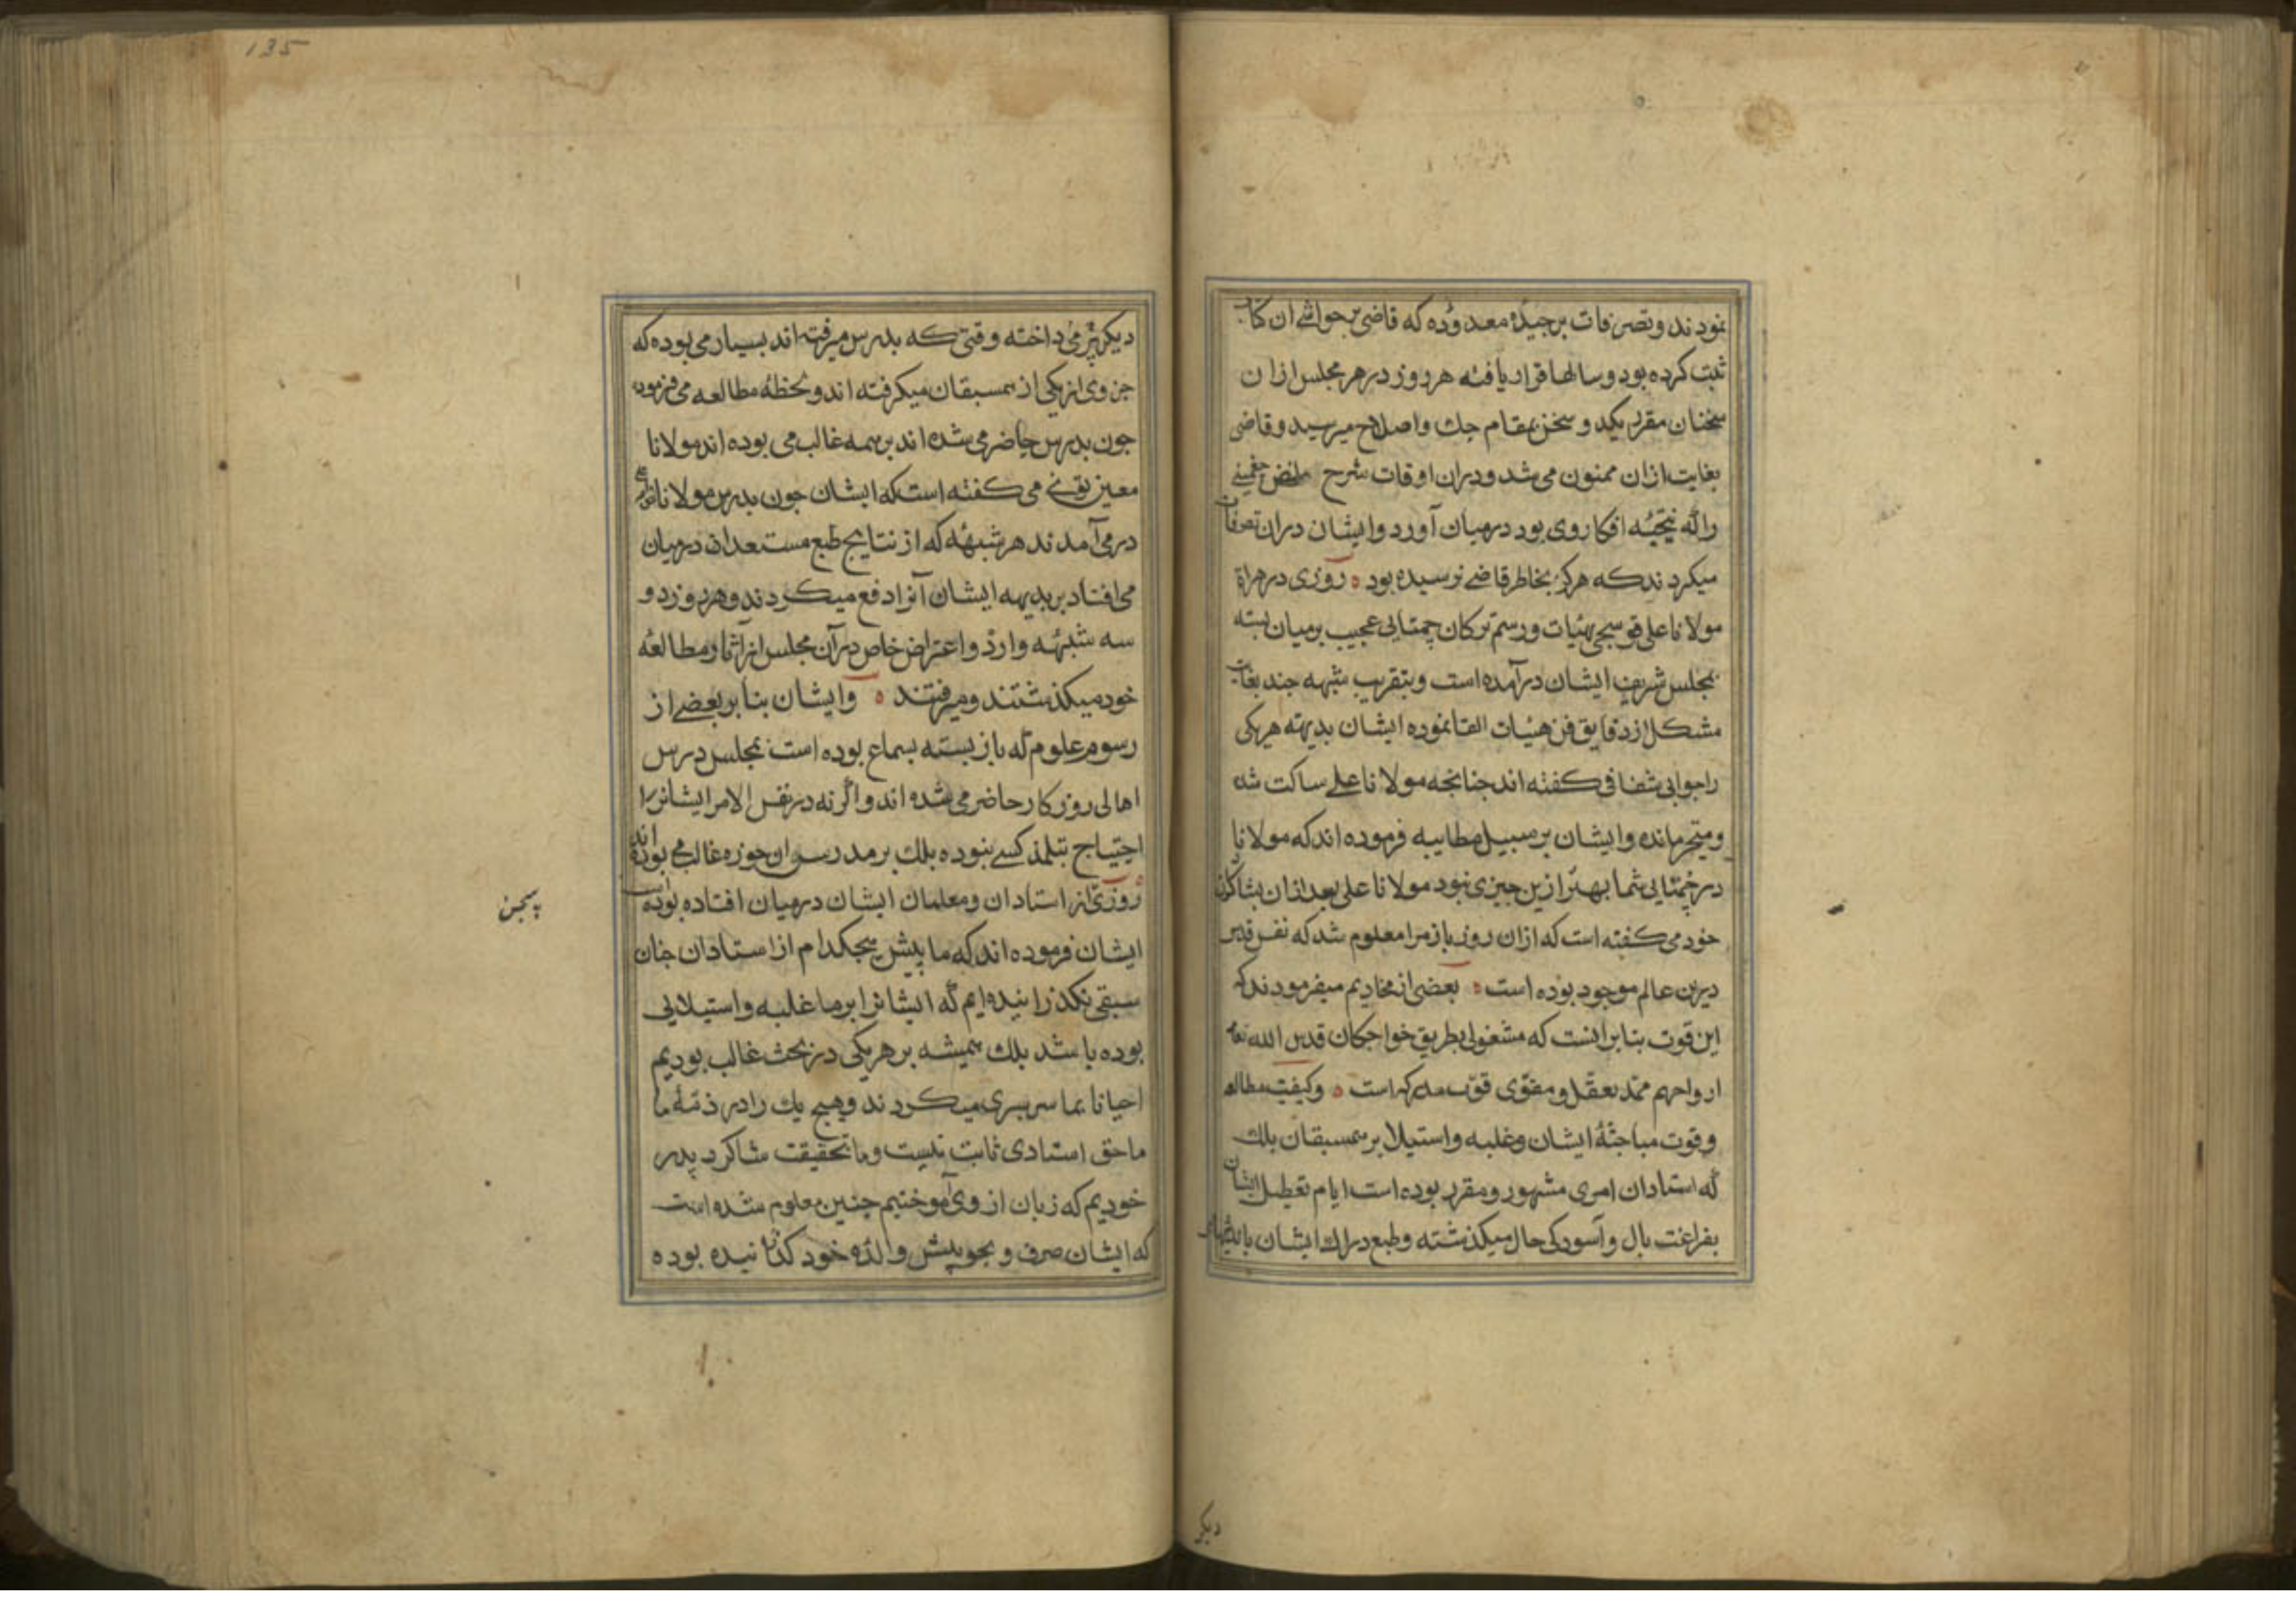 نمودند و تصرفات برجیدهٔ معدوده که قاضی بر حواشی ان کتاب
ثبت کرده بود و سالها قرار یافته هر روز در هر مجلس ازان
سخنان مقرر یکد و سخن بمقام حک و اصلاح میرسید و قاضی
بغایت ازان ممنون می شد و دران اوقات شرح ملخص جغمینی
را که نتیجهٔ افکار وی بود درمیان آورد و ایشان دران تصرفات
میکردند که هرکز بخاطر قاضی نرسیده بود ه روزی در هراة
مولانا علی قوسجی بهیات و رسم ترکان چمتایی عجیب بر میان بسته
بمجلس شریف ایشان درآمده است و بتقریب شبهه جند بغایت
مشکل از دقایق فن هیئات القا نموده ایشان بدیهته هر یکی
را جوابی شفافی کفته اند جنانجه مولانا علی ساکت شده
و متحیر مانده و ایشان بر سبیل مطایبه فرموده اند که مولانا
در چمتایی شما بهتر ازین جیزی نبود مولانا علی بعد ازان بشاکردان
خود می کفته است که ازان روز باز مرا معلوم شد که نفس قدسی
درین عالم موجود بوده است ه بعضی از مخادیم میفرمودند که
این قوت بنابر انست که مشغولی بطریق خواجکان قدس الله تعالی
ارواحهم ممد تعقل و مقوی قوت مدرکه است ه و کیفیت مطالعه
و قوت مباحثهٔ ایشان و غلبه و استیلا بر همسبقان بلک
که استادان امری مشهور و مقرر بوده است ایام تعطیل ایشان
بفراغت بال و آسودکی حال میکذشته و طبع دراک ایشان باندیشهای
دیکر
135
دیکر می پرداخته وقتی که بدرس میرفته اند بسیار می بوده که
جزوی از یکی از همسبقان میکرفته اند و لحظهٔ مطالعه می فرموده
جون بدرس حاضر می شده اند بر همه غالب می بوده اند مولانا
معین تونی می کفته است که ایشان جون بدرس مولانا
در می آمدند هر شبههٔ که از نتایج طبع مستعدان درمیان
می افتاد بر بدیهه ایشان آنرا دفع میکردند و هر روز دو
سه شبهه وارد و اعتراض خاص در آن مجلس از آثار مطالعهٔ
خود میکذشتند و میرفتند ه وایشان بنابر بعضی از
رسوم علوم که باز بسته بسماع بوده است بمجلس درس
اهالی روزکار حاضر می شده اند و اکرنه در نفس الامر ایشانرا
احتیاج بتلمذ کسی نبوده بلک بر مدرسان حوزه غالب می بوده اند
روزی از استادان و معلمان ایشان درمیان افتاده بوده است
ایشان فرموده اند که ما پیش هیجکدام از استادان جنان
سبقی نکذرانیده ایم که ایشانرا بر ما غلبه و استیلایی
بوده باشد بلک همیشه بر هر یکی در بحث غالب بودیم
احیانا بما سربسری میکردند و هیج یک را در ذمهٔ ما
ما حق استادی ثابت نیست و ما بحقیقت شاکرد پدر
خودیم که زبان از وی آموختیم جنین معلوم شده است
که ایشان صرف و نحو پیش والد خود کذرانیده بوده